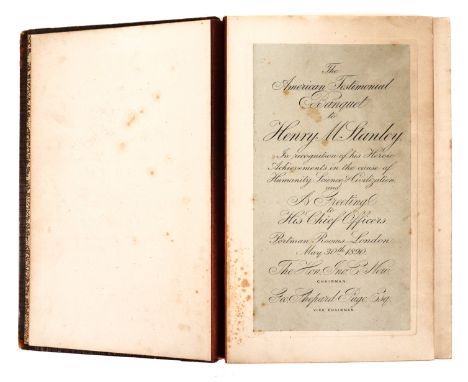 The
American Testimonial
Banquet
to
Henry M. Stanley
In recognition of his Heroic
Achievements in the cause of
Humanity, Science & Civilization
and
A Greeting
to
His Chief Officers
Portman Rooms London
May 30th 1890.
The Hon. Jno. C. New
CHAIRMAN.
Shepard Page Esq.
VICE CHAIRMAN.